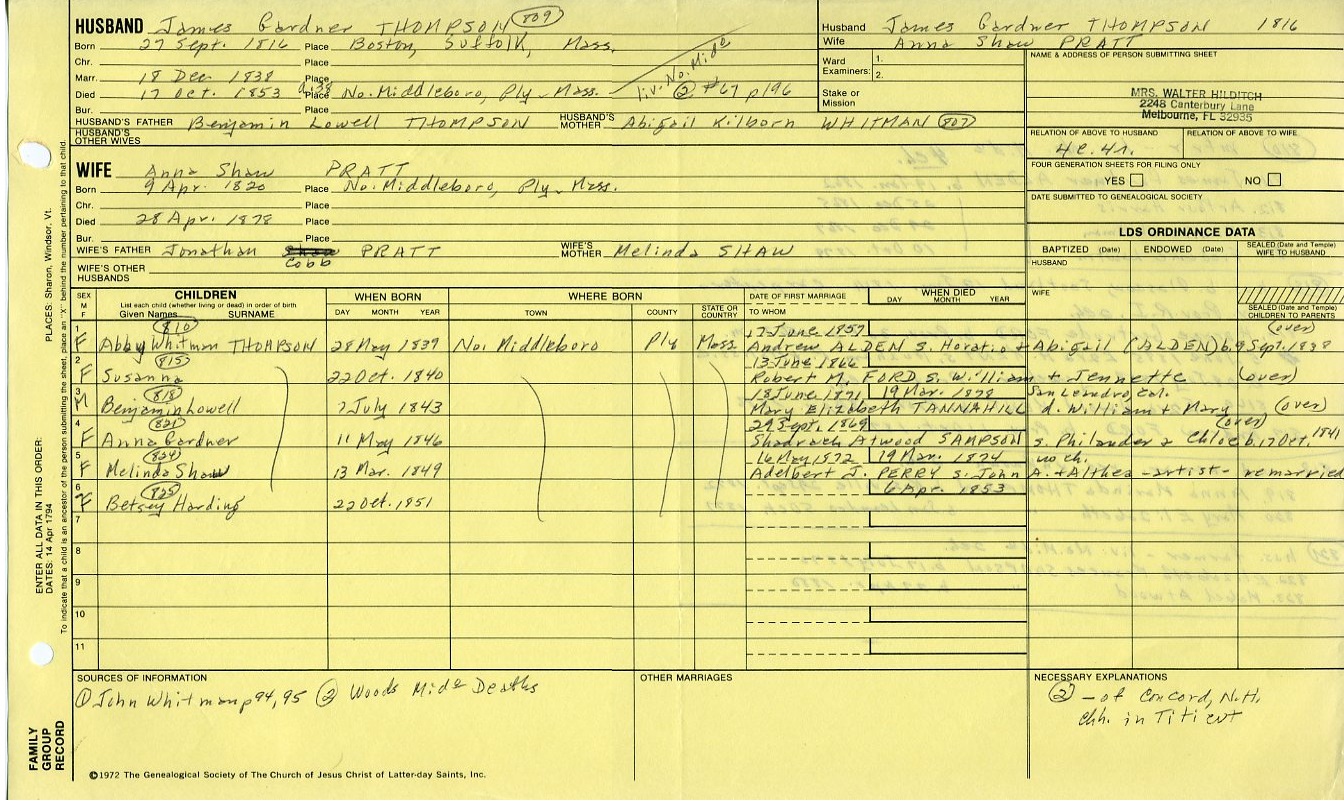 HUSBAND James Gardner THOMPSON 809
Born 27 Sept. 1816 Place Boston, Suffolk, Mass.
Chr. Place
Marr. 18 Dec 1838 Place
Died 17 Oct. 1853 Place No. Middleboro, Ply. Mass.
liv. No. Midd
② #67 p196
Bur. Place
HUSBAND'S FATHER Benjamin Lowell THOMPSON HUSBAND'S MOTHER Abigail Kilborn WHITMAN 807
HUSBAND'S OTHER WIVES
WIFE Anna Shaw PRATT
Born 9 Apr. 1820 Place No. Middleboro, Ply. Mass.
Chr. Place
Died 28 Apr. 1878 Place
Bur. Place
WIFE'S FATHER Jonathan Cobb PRATT WIFE'S MOTHER Melinda SHAW
WIFE'S OTHER HUSBANDS
Husband James Gardner THOMPSON 1816
Wife Anna Shaw PRATT
Ward Examiners: 1.
2.
Stake or Mission
NAME & ADDRESS OF PERSON SUBMITTING SHEET
MRS. WALTER HILDITCH
2248 Canterbury Lane
Melbourne, FL 32935
RELATION OF ABOVE TO HUSBAND RELATION OF ABOVE TO WIFE
4c. 4r.
FOUR GENERATION SHEETS FOR FILING ONLY
YES NO
DATE SUBMITTED TO GENEALOGICAL SOCIETY
LDS ORDINANCE DATA
BAPTIZED (Date) ENDOWED (Date) SEALED (Date and Temple) WIFE TO HUSBAND
HUSBAND
WIFE
SEALED (Date and Temple) CHILDREN TO PARENTS
SEX M F
CHILDREN
List each child (whether living or dead) in order of birth
Given Names SURNAME
WHEN BORN
DAY MONTH YEAR
WHERE BORN
TOWN COUNTY STATE OR COUNTRY
DATE OF FIRST MARRIAGE
TO WHOM
WHEN DIED
DAY MONTH YEAR
1 810 17 June 1857 (over)
F Abby Whitman THOMPSON 28 May 1839 No. Middleboro Ply Mass Andrew ALDEN s. Horatio + Abigail (ALDEN) b. 9 Sept. 1838
2 815 13 June 1866
F Susanna 22 Oct. 1840 Robert M. FORD s. William + Jennette (over)
3 818 18 June 1871 19 Mar. 1878 San Leandro, Cal.
M Benjamin Lowell 7 July 1843 Mary Elizabeth TANNAHILL d. William + Mary (over)
4 821 29 Sept. 1869 (over)
F Anna Gardner 11 May 1846 Shadrach Atwood SAMPSON s. Philander & Chloe b. 17 Oct. 1841
5 824 16 May 1872 19 Mar. 1874 no ch.
F Melinda Shaw 13 Mar. 1849 Adelbert J. PERRY s. John A. + Althea - artist - remarried
6 825 6 Apr. 1853
F Betsey Harding 22 Oct. 1851
7
8
9
10
11
SOURCES OF INFORMATION
① John Whitman p 94, 95 ② Woods Midd Deaths
OTHER MARRIAGES
NECESSARY EXPLANATIONS
② - of Concord, N.H.
chh. in Titicut
©1972 The Genealogical Society of The Church of Jesus Christ of Latter-day Saints, Inc.
FAMILY GROUP RECORD
ENTER ALL DATA IN THIS ORDER:
DATES: 14 Apr 1794
PLACES: Sharon, Windsor, Vt.
To indicate that a child is an ancestor of the person submitting the sheet, place an "X" behind the number pertaining to that child.